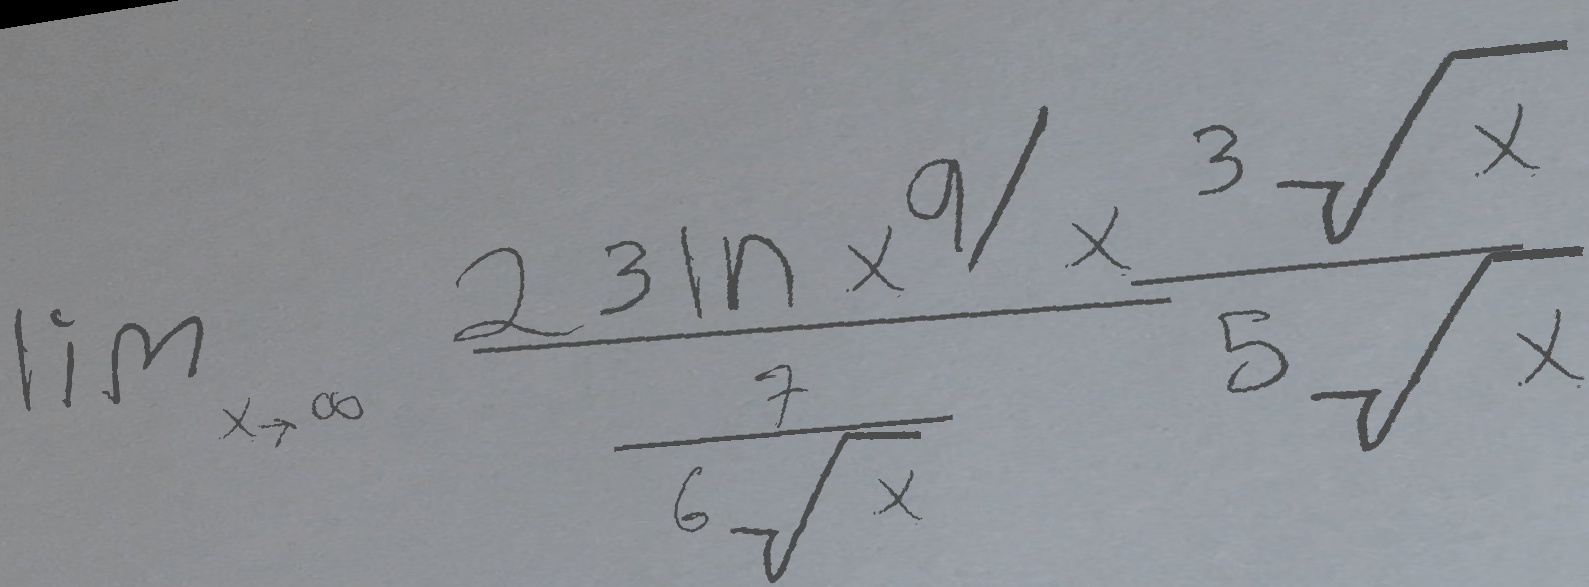 \lim_{x \to \infty} \frac{23 \ln x^{9} / x}{\frac{7}{6\sqrt{x}}} \frac{3\sqrt{x}}{5\sqrt{x}}